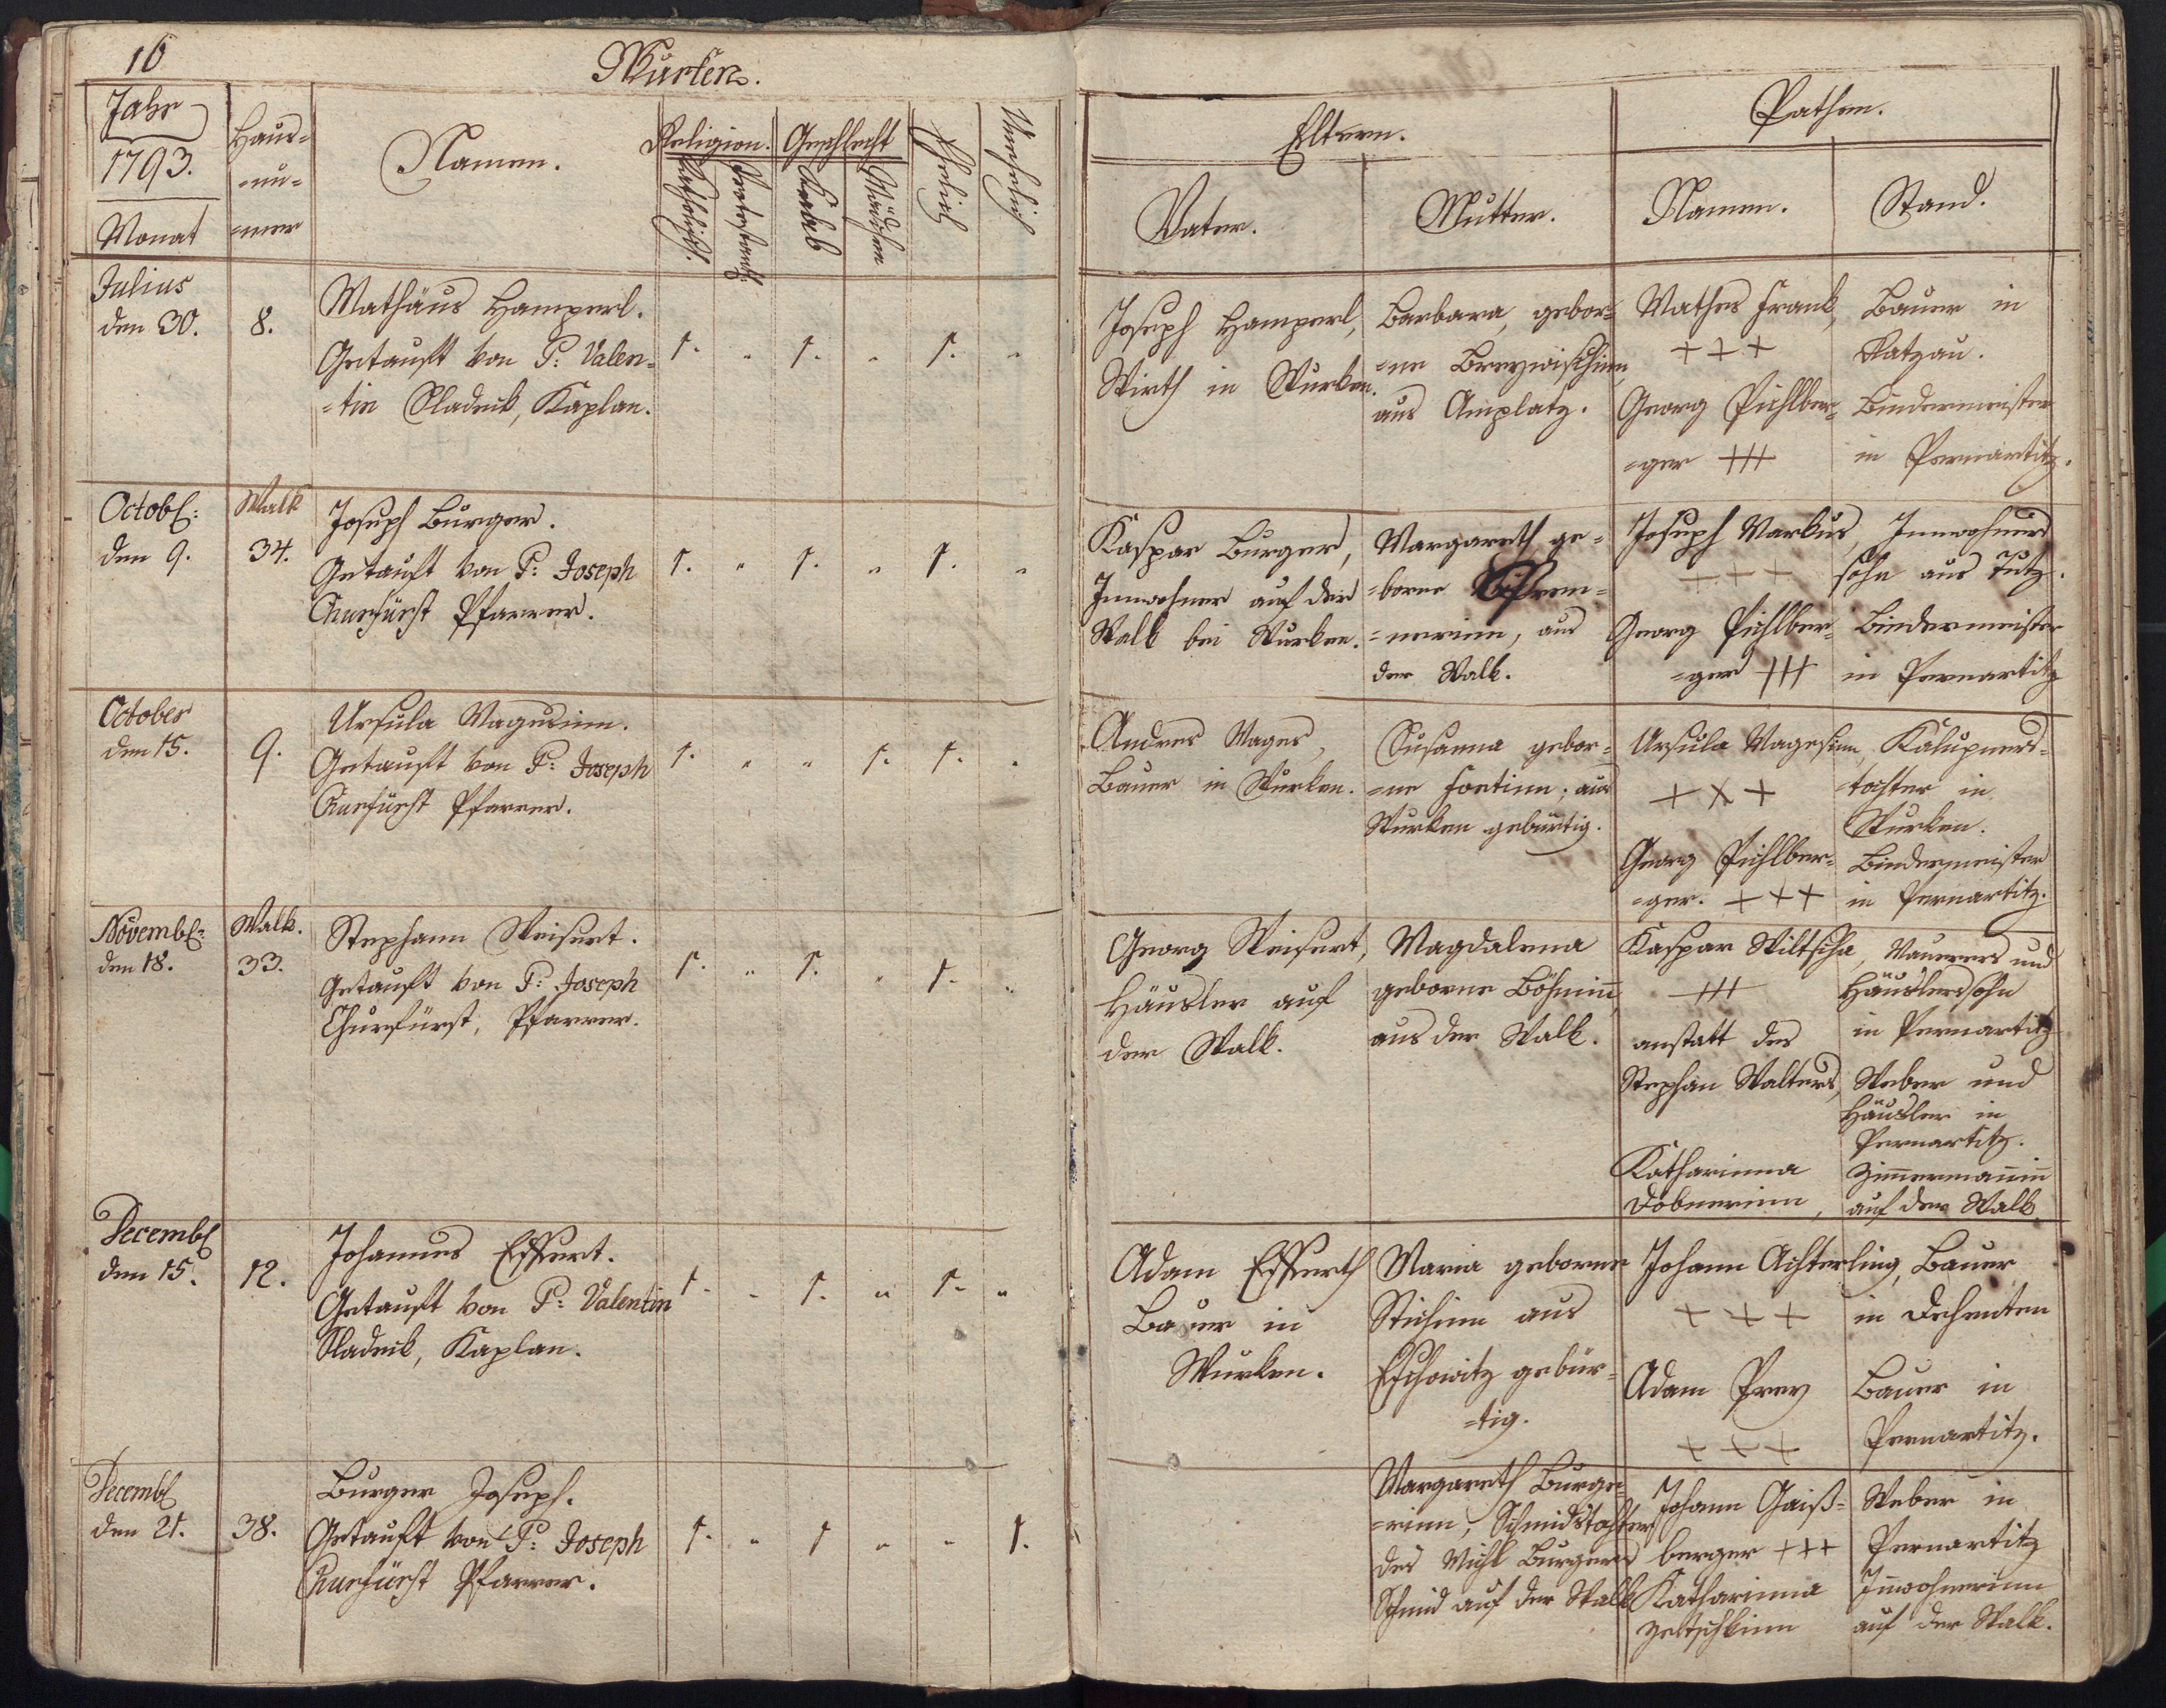 16
Wurken.
Jahr
1793.
Monat
Haus=
=nu=
=mer
Namen.
Religion.
Katholisch.
Protestantisch
Geschlecht
Knab
Mädchen
Ehelich
Unehelich
Eltern.
Vater.
Mutter.
Pathen.
Namen.
Stand.
Julius
den 30.
8.
Mathäus Hamperl.
Getauft von P: Valen=
=tin Sladeck, Kaplan.
1. " 1. " 1. "
Joseph Hamperl,
Wirth in Wurken.
Barbara, gebor=
=ne
aus Amplatz.
Mathes Frank,
+++
Georg Pichlber=
=ger +++
Bauer in
Ratzau.
Bindermeister
in Pernartitz.
Octob:
den 9.
Walk
34.
Joseph Burger.
Getauft von P: Joseph
Churfürst Pfarrer.
1. " 1. " 1. "
Kaspar Burger,
Innwohner auf der
Walk bei Wurken.
Margareth ge=
=borne
=nerinn, aus
der Walk.
Joseph Markus,
+++
Georg Pichlber=
=ger +++
Innwohners
sohn aus Tutz.
Bindermeister
in Pernartitz
October
den 15.
9.
Ursula Magesinn.
Getauft von P: Joseph
Churfürst Pfarrer.
1. " " 1. 1. "
Andres Mages,
Bauer in Wurken.
Susanna gebor=
=ne Fortinn, aus
Wurken gebürtig.
Ursula Magesinn,
+++
Georg Pichlber=
=ger. +++
Kalupners=
tochter in
Wurken.
Bindermeister
in Pernartitz.
Novemb:
den 18.
Walk.
33.
Stephann Weisert.
Getauft von P: Joseph
Churfürst, Pfarrer.
1. " 1. " 1. "
Georg Weisert,
Häusler auf
der Walk.
Magdalena
geborne Böhmin̄,
aus der Walk.
Kaspar Wiltscha,
+++
anstatt des
Stephan Walters,
Katharinna
Dobnerinn,
Maurers und
Häuslerssohn
in Pernartitz
Weber und
Häusler in
Pernartitz.
Zim̄ermanin̄
auf der Walk
Decemb
den 15.
12.
Johannes Essert.
Getauft von P: Valentin
Sladeck, Kaplan.
1. " 1. " 1. "
Adam Esserth
Bauer in
Wurken.
Maria geborne
Stichinn aus
Eschowitz gebür=
=tig.
Johann Achterling,
+++
Adam Prey
+++
Bauer
in Dehenten
Bauer in
Pernartitz.
Decemb
den 21.
38.
Burger Joseph.
Getauft von P: Joseph
Churfürst Pfarrer.
1. " 1 " " 1.
Margareth Burge=
=rinn, Schmidstochter
des Michl Burgers
Schmid auf der Walk
Johann Gaiß=
berger +++
Katharinna
Weber in
Pernartitz
In̄wohnerinn
auf der Walk.